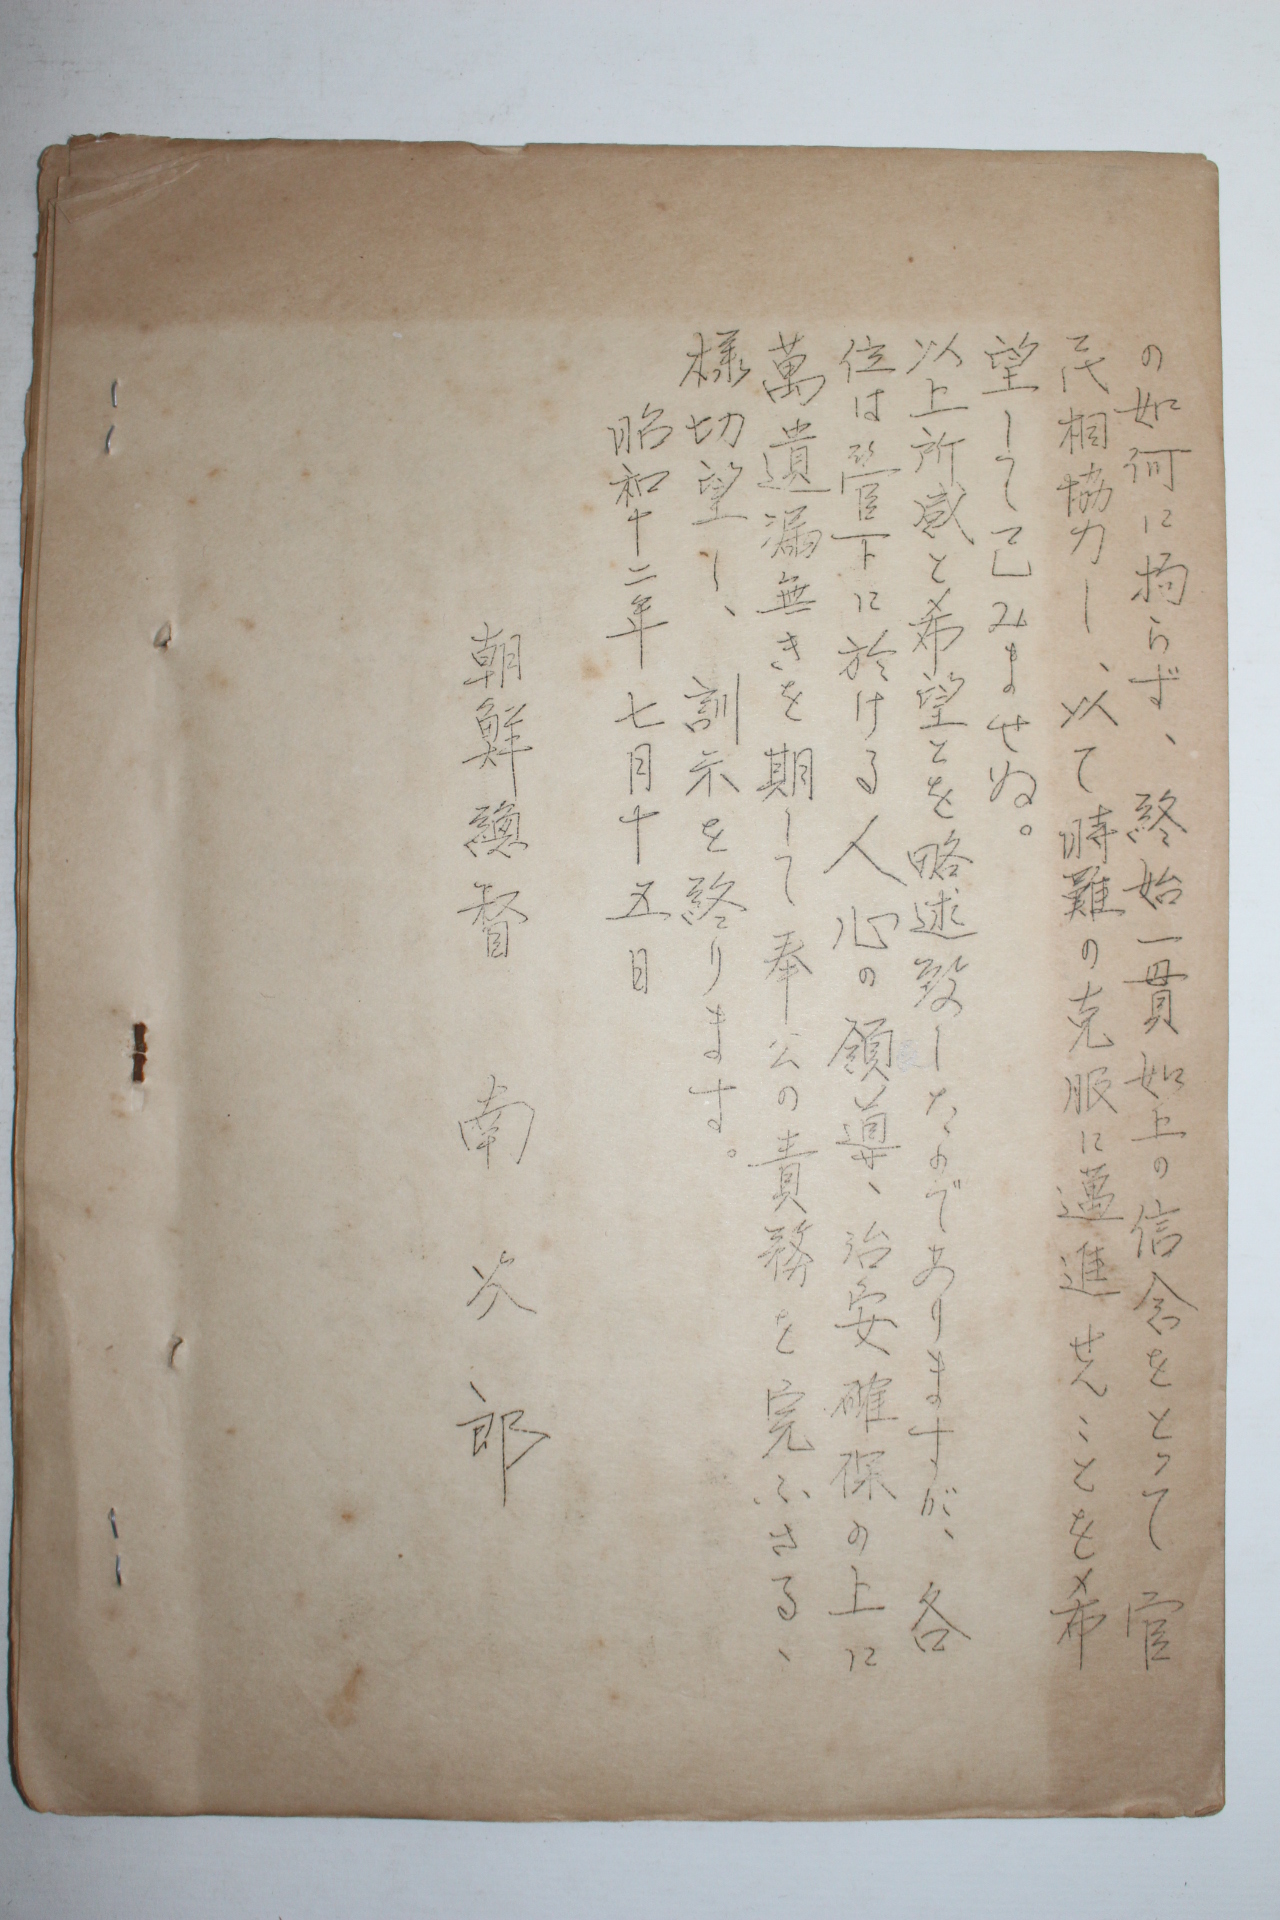 の如何に拘らず、終始一貫如上の信念をとって官
民相協力し、以て時難の克服に邁進せんことを希
望して已みませぬ。
以上所感と希望とを略述致したのでありますが、各
位は管下に於ける人心の領導、治安確保の上に
萬遺漏無きを期して奉公の責務を完ふさるゝ
様切望し、訓示を終ります。
昭和十二年七月十五日
朝鮮總督 南次郎